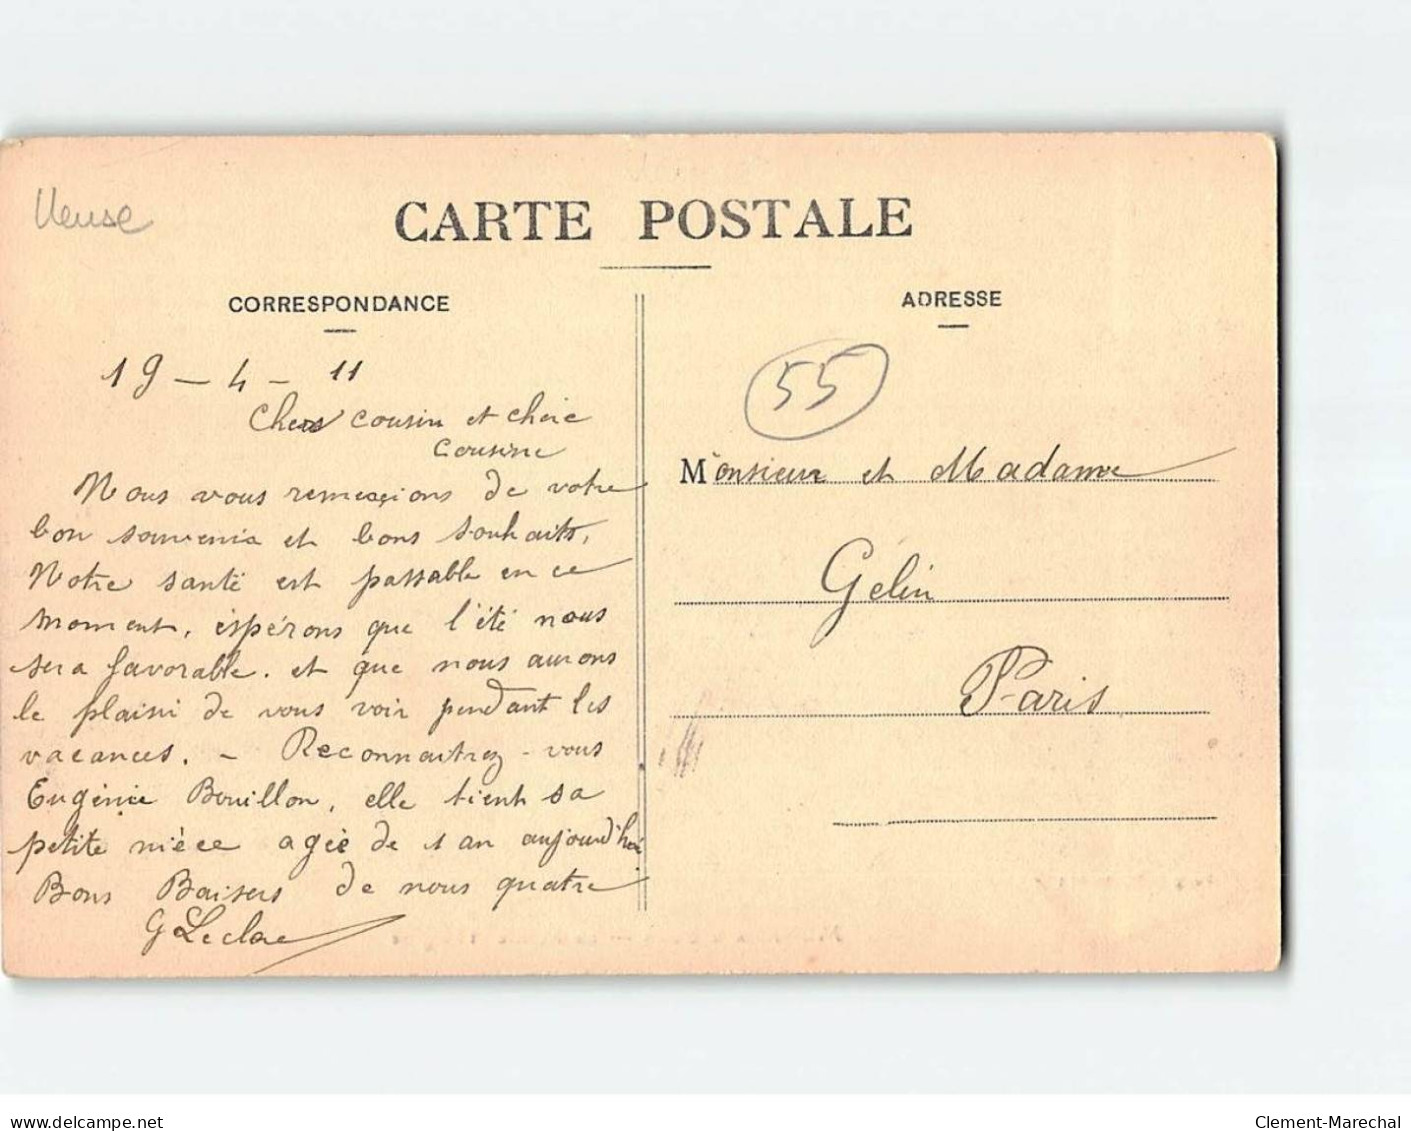 Meuse
CARTE POSTALE
CORRESPONDANCE
19 - 4 - 11
Chers cousin et chère
cousine
Nous vous remerçions de votre
bon souvenir et bons souhaits,
Notre santé est passable en ce
moment, éspérons que l'été nous
sera favorable. et que nous aurons
le plaisir de vous voir pendant les
vacances. - Reconnaitrez-vous
Eugénie Bouillon, elle tient sa
petite nièce agée de 1 an aujourd'hui
Bons Baisers de nous quatre
G Leclerc
ADRESSE
55
Monsieur et Madame
Gelin
Paris
delcampe.net
Clement-Marechal